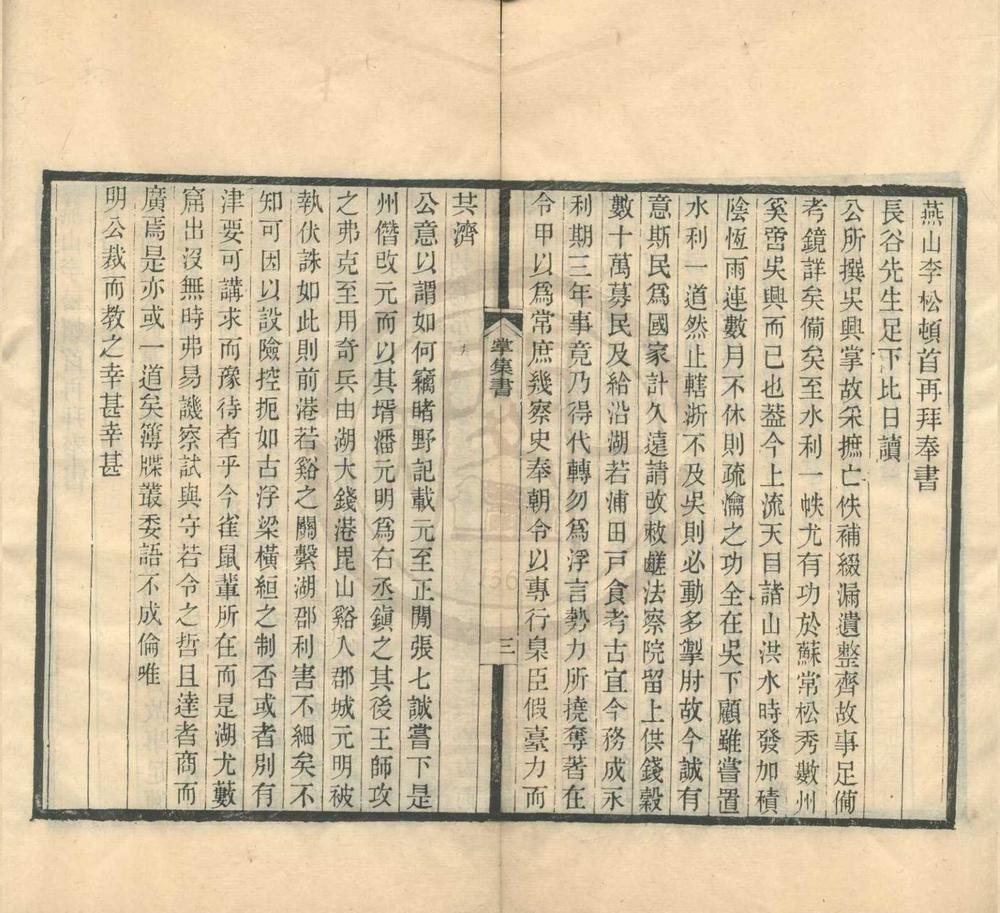 燕山李松頓首再拜奉書
長谷先生足下比日讀
公所撰吳興掌故采摭亡佚補綴漏遺整齊故事足備
考鏡詳矣備矣至水利一帙尤有功於蘇常松秀數州
奚啻吳興而已也葢今上流天目諸山洪水時發加積
陰恆雨連數月不休則疏瀹之功全在吳下顧雖嘗置
水利一道然止轄浙不及吳則必動多掣肘故今誠有
意斯民為國家計久遠請改敕鹺法察院留上供錢穀
數十萬募民及給沿湖若浦田戸食考古宜今務成永
利期三年事竟乃得代轉勿為浮言勢力所撓奪著在
令甲以為常庶幾察史奉朝令以專行臬臣假豪力而
掌集書
三
共濟
公意以謂如何竊睹野記載元至正閒張七誠嘗下是
州僭改元而以其壻潘元明為右丞鎮之其後王師攻
之弗克至用奇兵由湖大錢港毘山谿入郡城元明被
執伏誅如此則前港若谿之關繫湖郡利害不細矣不
知可因以設險控扼如古浮梁橫絙之制否或者別有
津要可講求而豫待者乎今雀鼠輩所在而是湖尤藪
窟出沒無時弗易譏察試與守若令之哲且達者商而
廣焉是亦或一道矣簿牒叢委語不成倫唯
明公裁而教之幸甚幸甚